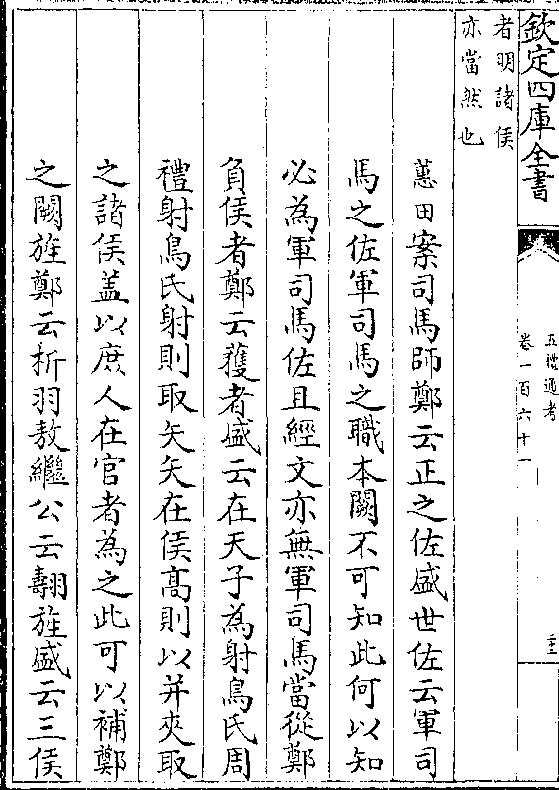 欽定四庫全書
五禮通考
卷一百六十一
者明諸侯
亦當然也
蕙田案司馬師鄭云正之佐盛世佐云軍司
馬之佐軍司馬之職本闕不可知此何以知
必為軍司馬佐且經文亦無軍司馬當從鄭
負侯者鄭云獲者盛云在天子為射鳥氏周
禮射鳥氏射則取矢矢在侯髙則以并夾取
之諸侯盖以庶人在官者為之此可以補鄭
之闕旌鄭云折羽敖繼公云翿旌盛云三侯